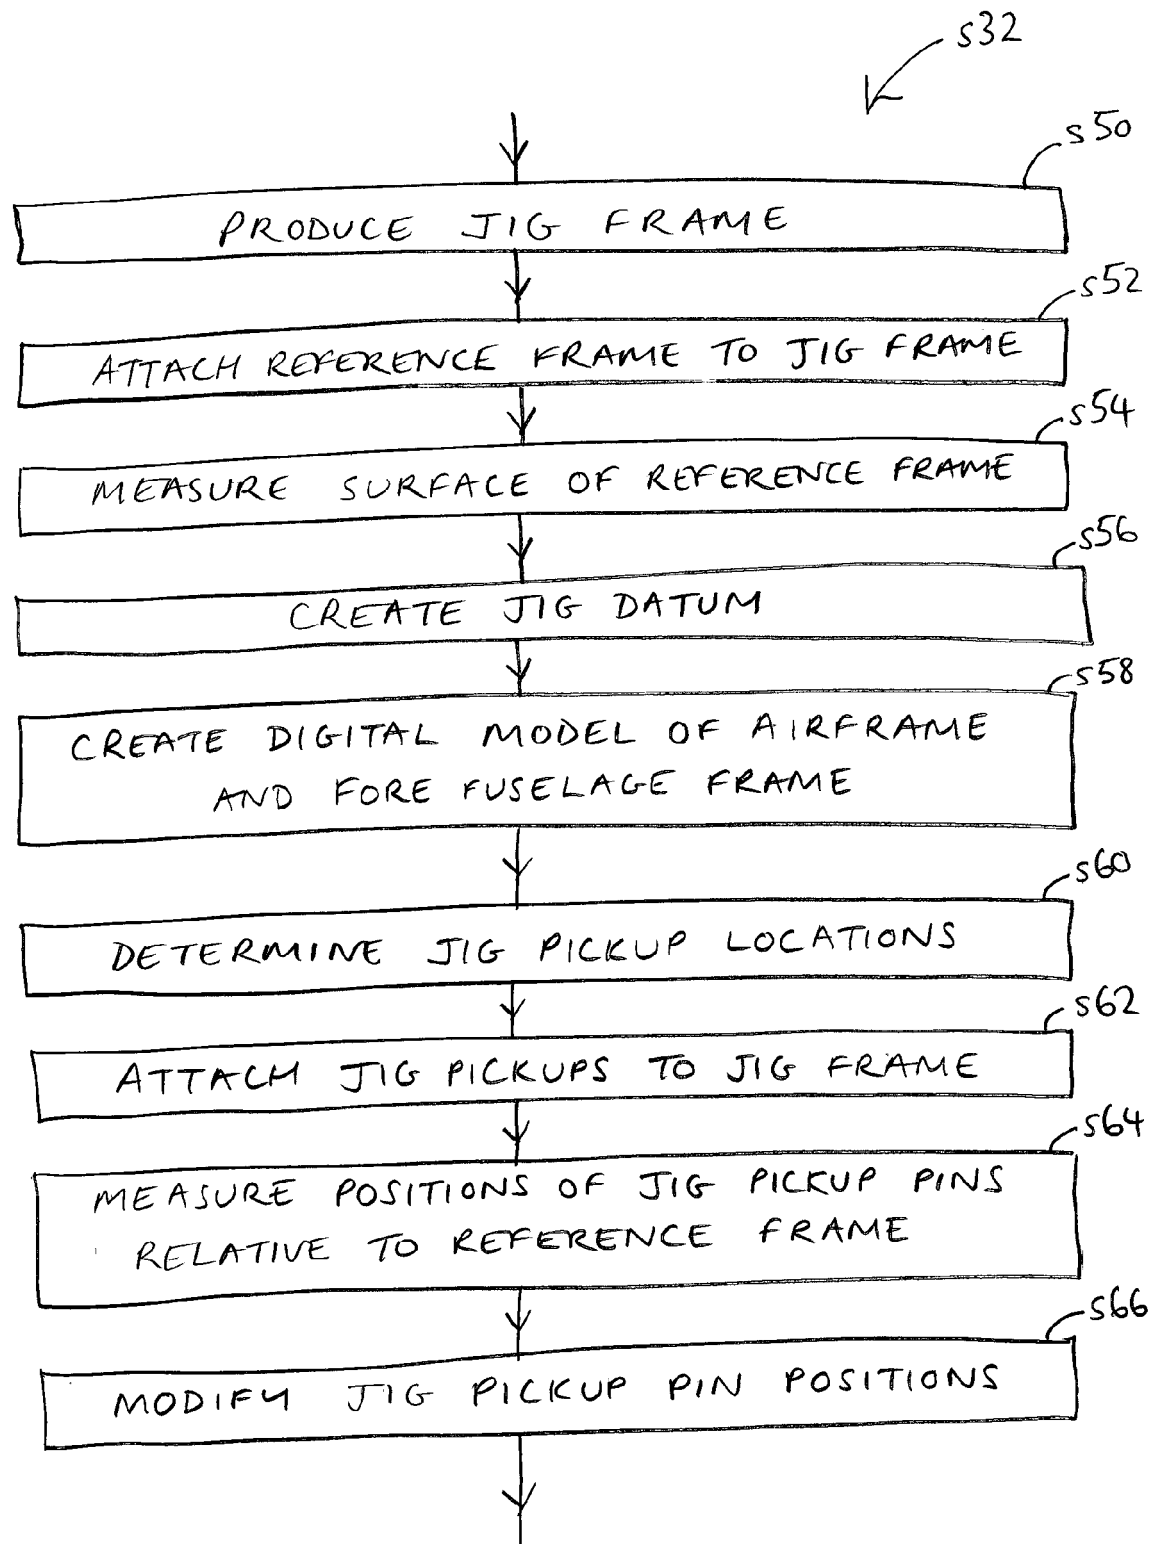 s32
s50
PRODUCE JIG FRAME
s52
ATTACH REFERENCE FRAME TO JIG FRAME
s54
MEASURE SURFACE OF REFERENCE FRAME
s56
CREATE JIG DATUM
s58
CREATE DIGITAL MODEL OF AIRFRAME
AND FORE FUSELAGE FRAME
s60
DETERMINE JIG PICKUP LOCATIONS
s62
ATTACH JIG PICKUPS TO JIG FRAME
s64
MEASURE POSITIONS OF JIG PICKUP PINS
RELATIVE TO REFERENCE FRAME
s66
MODIFY JIG PICKUP PIN POSITIONS